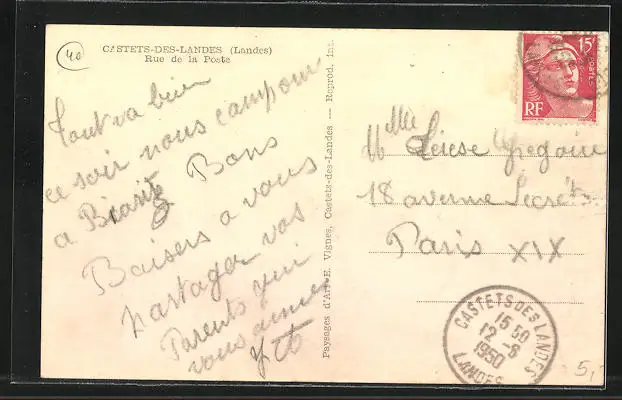 40
CASTETS-DES-LANDES (Landes)
Rue de la Poste
Tout va bien
ce soir nous campons
a Biaritz Bons
Baisers a vous
partager vos
Parents qui
vous aime
Paysages d'Art E. Vignes, Castets-des-Landes — Reprod. int.
15F
POSTES
RF
Mlle
18 avenue Secrét
Paris XIX
CASTETS DES LANDES
15 50
12 -6
1950
LANDES
5,